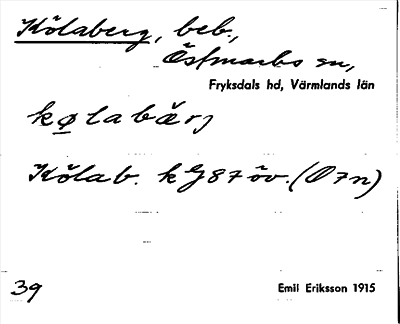 Kölaberg, beb.,
Östmarks sn,
Fryksdals hd, Värmlands län
kølabärj
Kölab. kG87 öv. (O7n)
39 Emil Eriksson 1915